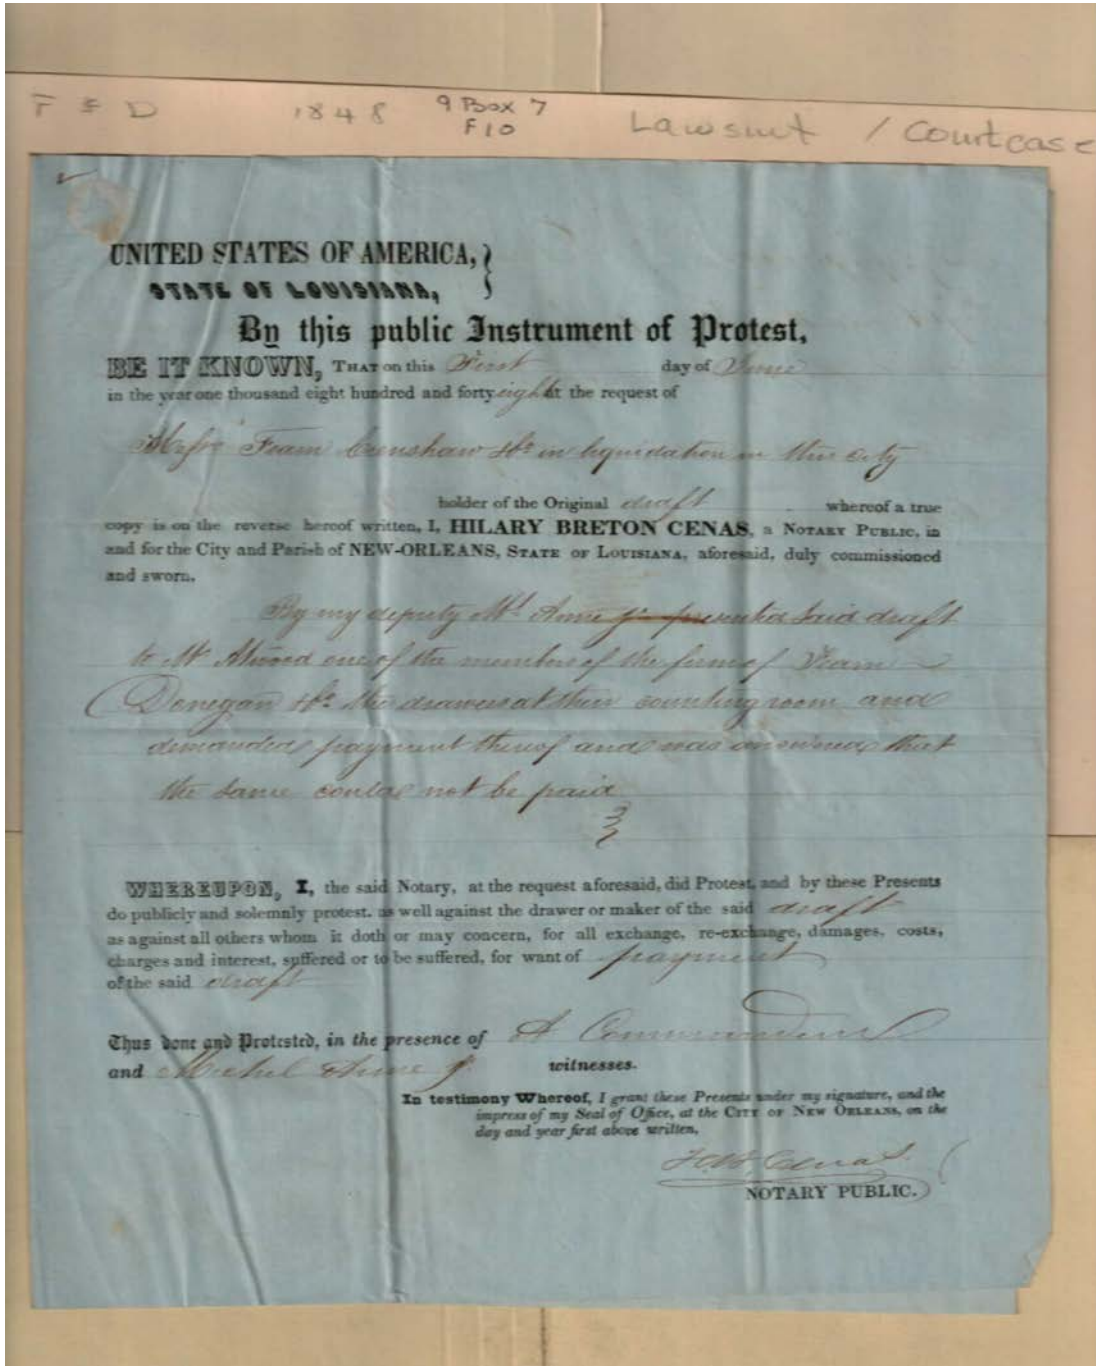 F & D 1848 9 Box 7 Lawsuit / Courtcase
F10
UNITED STATES OF AMERICA,
STATE OF LOUISIANA,
By this public Instrument of Protest,
BE IT KNOWN, THAT on this First day of June
in the year one thousand eight hundred and forty eight at the request of
Messrs Fearn Crenshaw & Co in liquidation in this city
holder of the Original draft whereof a true
copy is on the reverse hereof written, I, HILARY BRETON CENAS, a NOTARY PUBLIC, in
and for the City and Parish of NEW-ORLEANS, STATE OF LOUISIANA, aforesaid, duly commissioned
and sworn,
By my deputy Mr. presented said draft
to Mr Atwood one of the members of the firm of Fearn
Donegan & Co the drawers at their counting room and
demanded payment thereof and was answered that
the same could not be paid
WHEREUPON, I, the said Notary, at the request aforesaid, did Protest, and by these Presents
do publicly and solemnly protest. as well against the drawer or maker of the said draft
as against all others whom it doth or may concern, for all exchange, re-exchange, damages, costs,
charges and interest, suffered or to be suffered, for want of payment
of the said draft
Thus done and Protested, in the presence of A
and Michel witnesses.
In testimony Whereof, I grant these Presents under my signature, and the
impress of my Seal of Office, at the CITY OF NEW ORLEANS, on the
day and year first above written,
H. B. Cenas
NOTARY PUBLIC.